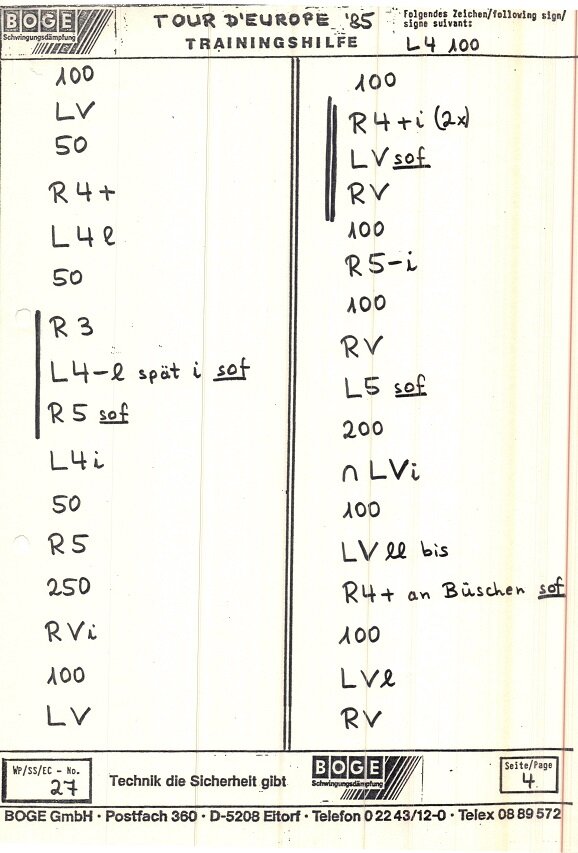 BOGE
Schwingungsdämpfung
TOUR D'EUROPE '85
TRAININGSHILFE
Folgendes Zeichen/following sign/
signe suivant:
L4 100
100
LV
50
R4+
L4l
50
R3
L4-l spät i sof
R5 sof
L4i
50
R5
250
RVi
100
LV
100
R4+i (2x)
LV sof
RV
100
R5-i
100
RV
L5 sof
200
∩ LVi
100
LV ll bis
R4+ an Büschen sof
100
LVl
RV
WP/SS/EC - No.
27
Technik die Sicherheit gibt
BOGE
Schwingungsdämpfung
Seite/Page
4
BOGE GmbH · Postfach 360 · D-5208 Eitorf · Telefon 0 22 43/12-0 · Telex 08 89 572